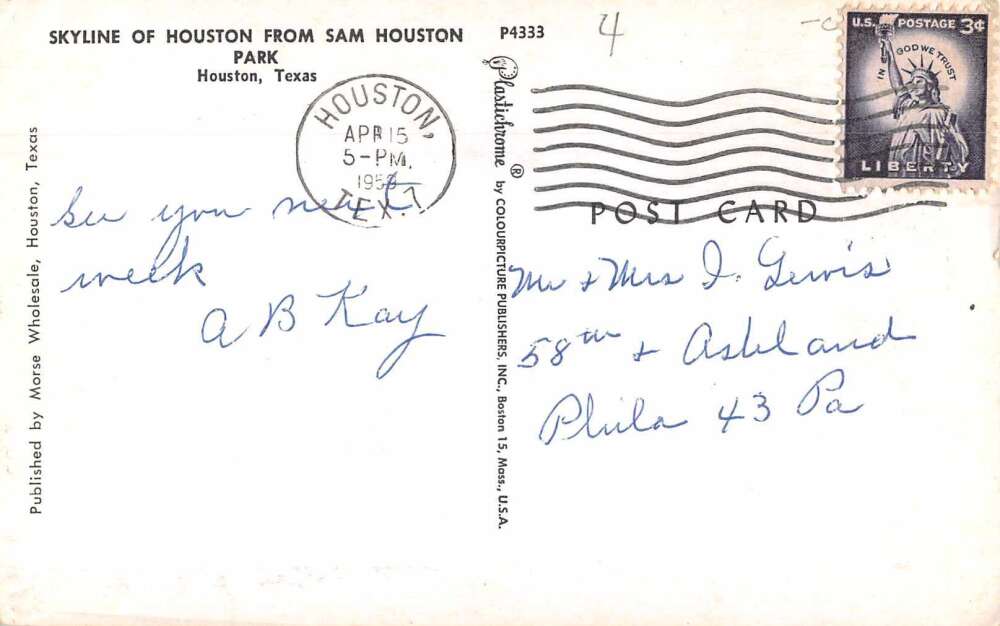 SKYLINE OF HOUSTON FROM SAM HOUSTON
PARK
Houston, Texas
P4333
4
U.S. POSTAGE 3¢
IN GOD WE TRUST
LIBERTY
HOUSTON,
APR 15
5-PM
195
TEX.
POST CARD
See you next
week
A B Kay
Mr & Mrs I. Lewis
58th & Ashland
Phila 43 Pa
Plastichrome ® by COLOURPICTURE PUBLISHERS, INC., Boston 15, Mass., U.S.A.
Published by Morse Wholesale, Houston, Texas